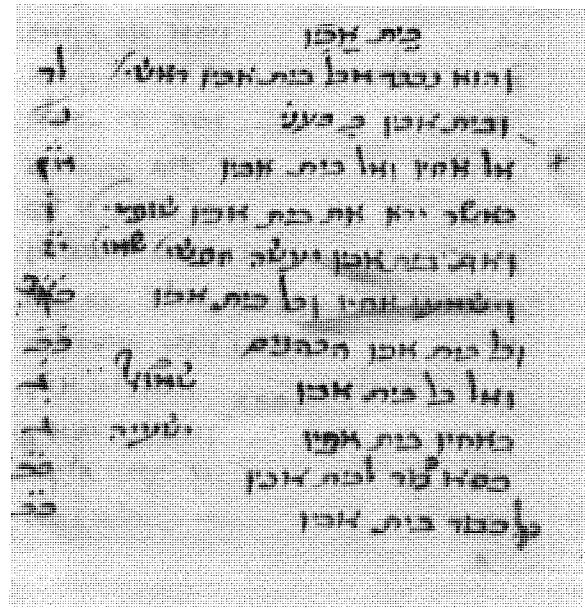 בית אביו
והוא נכבד מכל בית אביו ראשי׳ לד
ובית אביו
אל אחיו ואל בית אביו
כאשר ירא את בית אביו שופטי׳ ו
ואת בית אביו יעשה חפשי שמו׳ יז
וישמעו אחיו וכל בית אביו
כל בית אביו הכהנים כב
ואל כל בית אביו שמואל ג
באחיו בית אביו ישעיה ג
לבית אביו כב
כל כבוד בית אביו כב